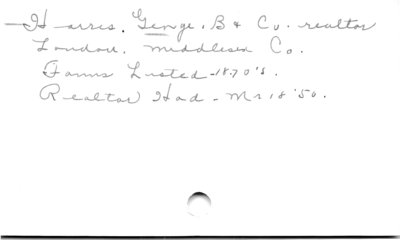 Harris. George. B & Co. realtor
London. Middlesex Co.
Farms Listed - 1870's.
Realtor Had - Mr 18 '50.